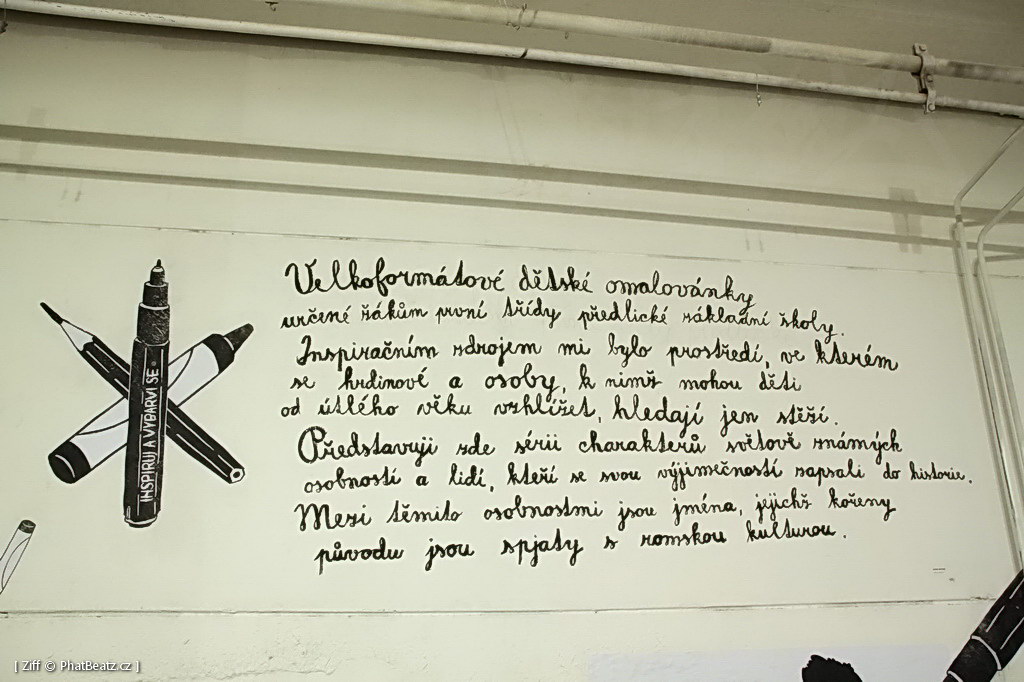 Velkoformátové dětské omalovánky
určené žákům první třídy předlické základní školy.
Inspiračním zdrojem mi bylo prostředí, ve kterém
se hrdinové a osoby, k nimž mohou děti
od útlého věku vzhlížet, hledají jen stěží.
Představuji zde sérii charakterů světově známých
osobností a lidí, kteří se svou výjimečností zapsali do historie.
Mezi těmito osobnostmi jsou jména, jejichž kořeny
původu jsou spjaty s romskou kulturou.
INSPIRUJ A VYBARVI SE
[ Ziff © PhatBeatz.cz ]